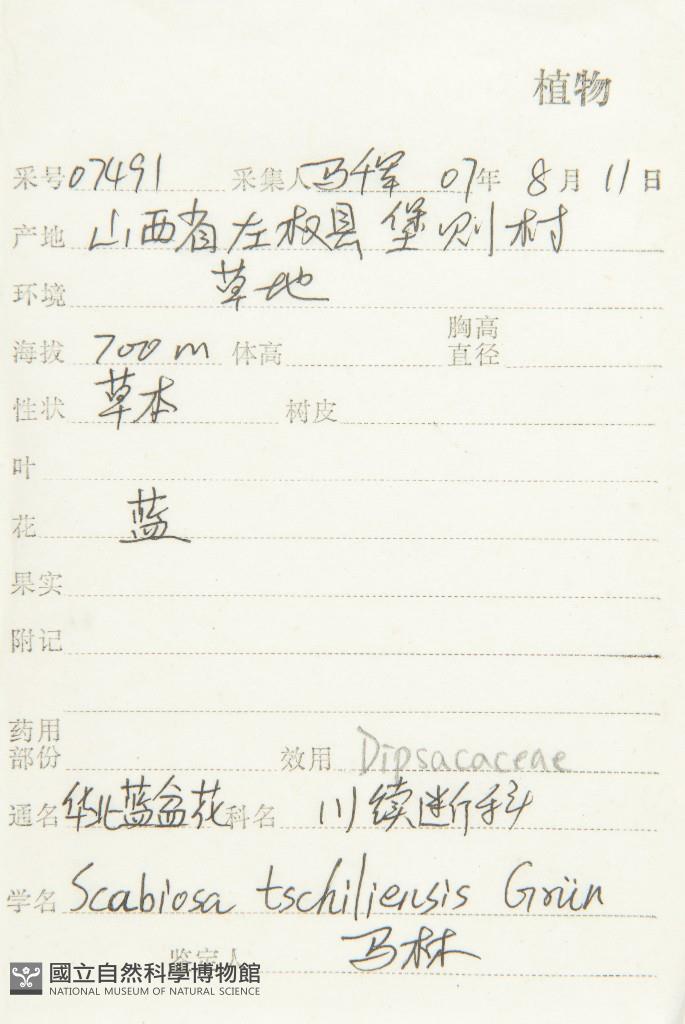 植物
采号 07491 采集人 马千军 07年 8月 11日
产地 山西省左权县堡则村
环境 草地
海拔 700m 体高 胸高直径
性状 草本 树皮
叶
花 蓝
果实
附记
药用部份 效用 Dipsacaceae
通名 华北蓝盆花 科名 川续断科
学名 Scabiosa tschiliensis Grün
鉴定人 马林
國立自然科學博物館
NATIONAL MUSEUM OF NATURAL SCIENCE